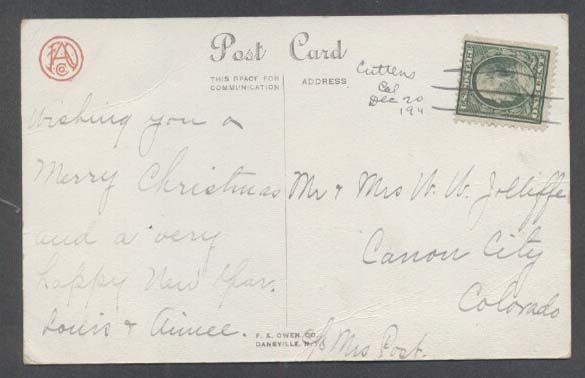 FAO
Co
Post Card
THIS SPACE FOR
COMMUNICATION
ADDRESS
U.S. POSTAGE
ONE CENT
Cuttens
Cal
Dec 20
191
Wishing you a
Merry Christmas
and a very
happy New Year.
Louis & Aimee.
Mr & Mrs W. W. Jolliffe
Canon City
Colorado
c/o Mrs Post.
F. A. OWEN CO.
DANSVILLE, N.Y.